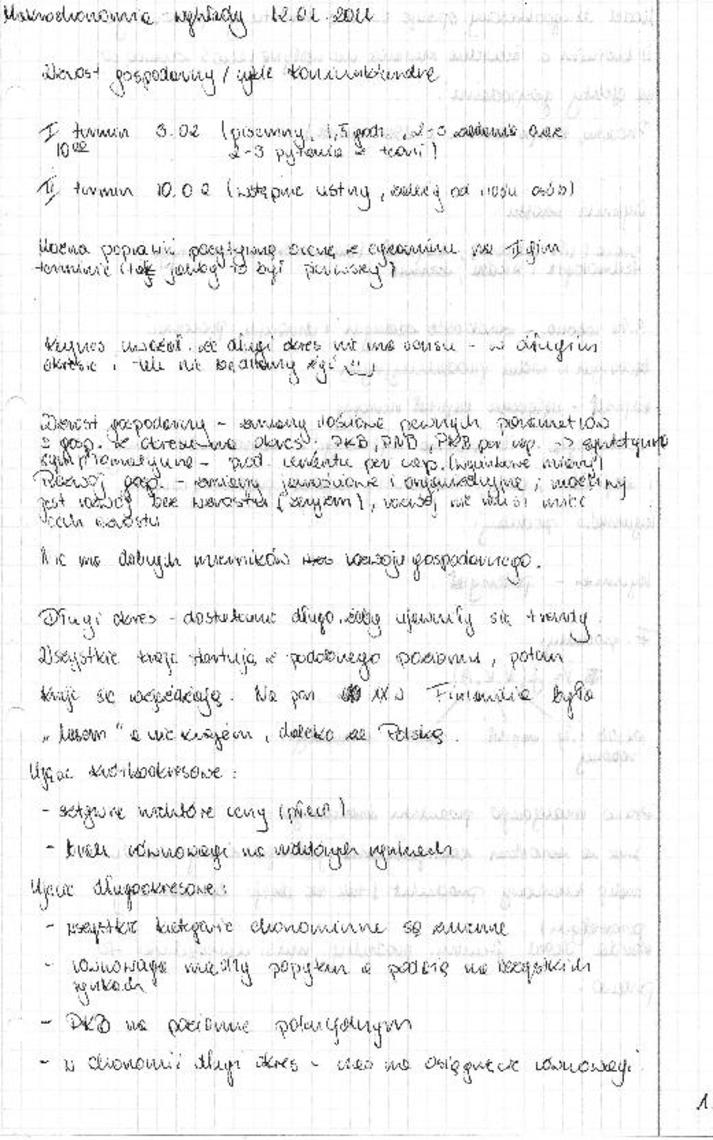 Makroekonomia wykłady 12.01.2011
Wzrost gospodarczy / cykle koniunkturalne
I termin 3.02 (pisemny, 1,5 godz, 2-3 zadania oraz
10⁰⁰ 2-3 pytania z teorii)
II termin 10.02 (wstępnie ustny, zależy od ilości osób)
Można poprawić pozytywną ocenę z egzaminu na IIgim
terminie (tak jakby to był pierwszy)
Keynes uważał, że długi okres nie ma sensu - w długim
okresie i tak nie będziemy żyć
Wzrost gospodarczy - zmiany ilościowe pewnych parametrów
z gosp. ze okresu na okres. PKB, PNB, PKB per cap. -> syntetyczne
symptomatyczne - prod. cementu per cap. (wycinkowe miary)
Rozwój gosp. - zmiany jakościowe i organizacyjne, i możliwy
jest rozwój bez wzrostu, rozwój nie musi mieć
cech wzrostu
Nie ma dobrych mierników rozwoju gospodarczego.
Długi okres - dostatecznie długo, żeby ujawniły się trendy.
Wszystkie kraje startują z podobnego poziomu, potem
kraje się rozjeżdżają. Na pocz XIX w Finlandia była
„lasem" a nie krajem, daleko za Polską.
Ujęcie krótkookresowe:
- sztywne niektóre ceny (płace)
- brak równowagi na niektórych rynkach
Ujęcie długookresowe:
- wszystkie kategorie ekonomiczne są zmienne
- równowaga między popytem a podażą na wszystkich
rynkach
- PKB na poziomie potencjalnym
- w ekonomii długi okres - czas na osiągnięcie równowagi
1